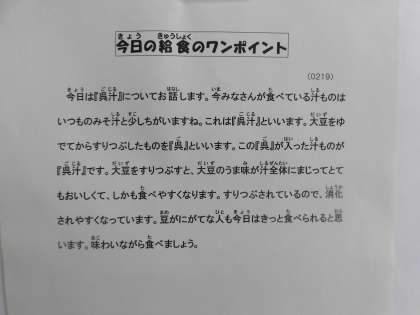 今日の給食のワンポイント
(0219)
今日は『呉汁』についてお話します。今みなさんが食べている汁ものは
いつものみそ汁と少しちがいますね。これは『呉汁』といいます。大豆をゆ
でてからすりつぶしたものを『呉』といいます。この『呉』が入った汁ものが
『呉汁』です。大豆をすりつぶすと、大豆のうま味が汁全体にまじってとて
もおいしくて、しかも食べやすくなります。すりつぶされているので、消化
されやすくなっています。豆がにがてな人も今日はきっと食べられると思
います。味わいながら食べましょう。